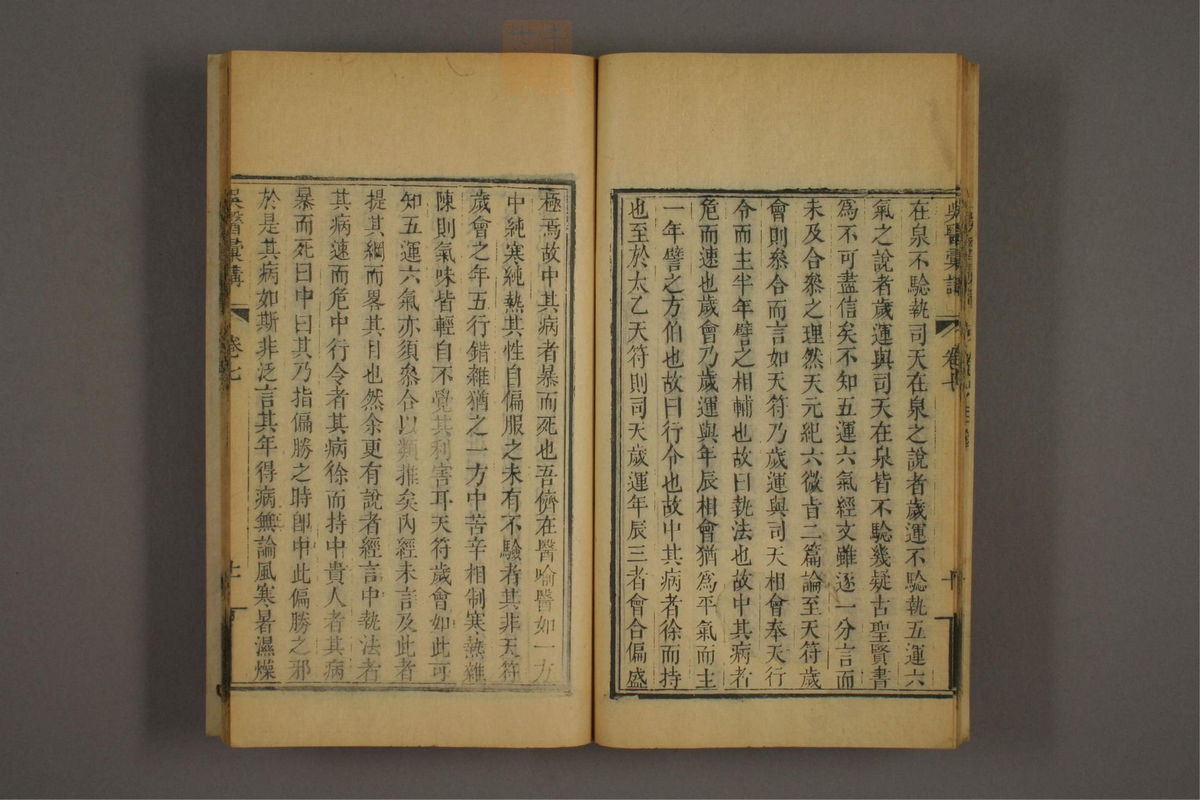 吳醫彙講
卷七
在泉不騐執司天在泉之說者歲運不騐執五運六
氣之說者歲運與司天在泉皆不騐幾疑古聖賢書
爲不可盡信矣不知五運六氣經文雖逐一分言而
未及合叅之理然天元紀六微㫖二篇論至天符歲
會則叅合而言如天符乃歲運與司天相會奉天行
令而主半年譬之相輔也故曰執法也故中其病者
危而速也歲會乃歲運與年辰相會猶爲平氣而主
一年譬之方伯也故曰行令也故中其病者徐而持
也至於太乙天符則司天歲運年辰三者會合偏盛
極焉故中其病者暴而死也吾儕在醫喻醫如一方
中純寒純熱其性自偏服之未有不驗者其非天符
歲會之年五行錯雜猶之一方中苦辛相制寒熱雜
陳則氣味皆輕自不覺其利害耳天符歲會如此可
知五運六氣亦須叅合以類推矣內經未言及此者
提其綱而畧其目也然余更有說者經言中執法者
其病速而危中行令者其病徐而持中貴人者其病
暴而死曰中曰其乃指偏勝之時卽中此偏勝之邪
於是其病如斯非泛言其年得病無論風寒暑濕燥
吳醫彙講
卷七